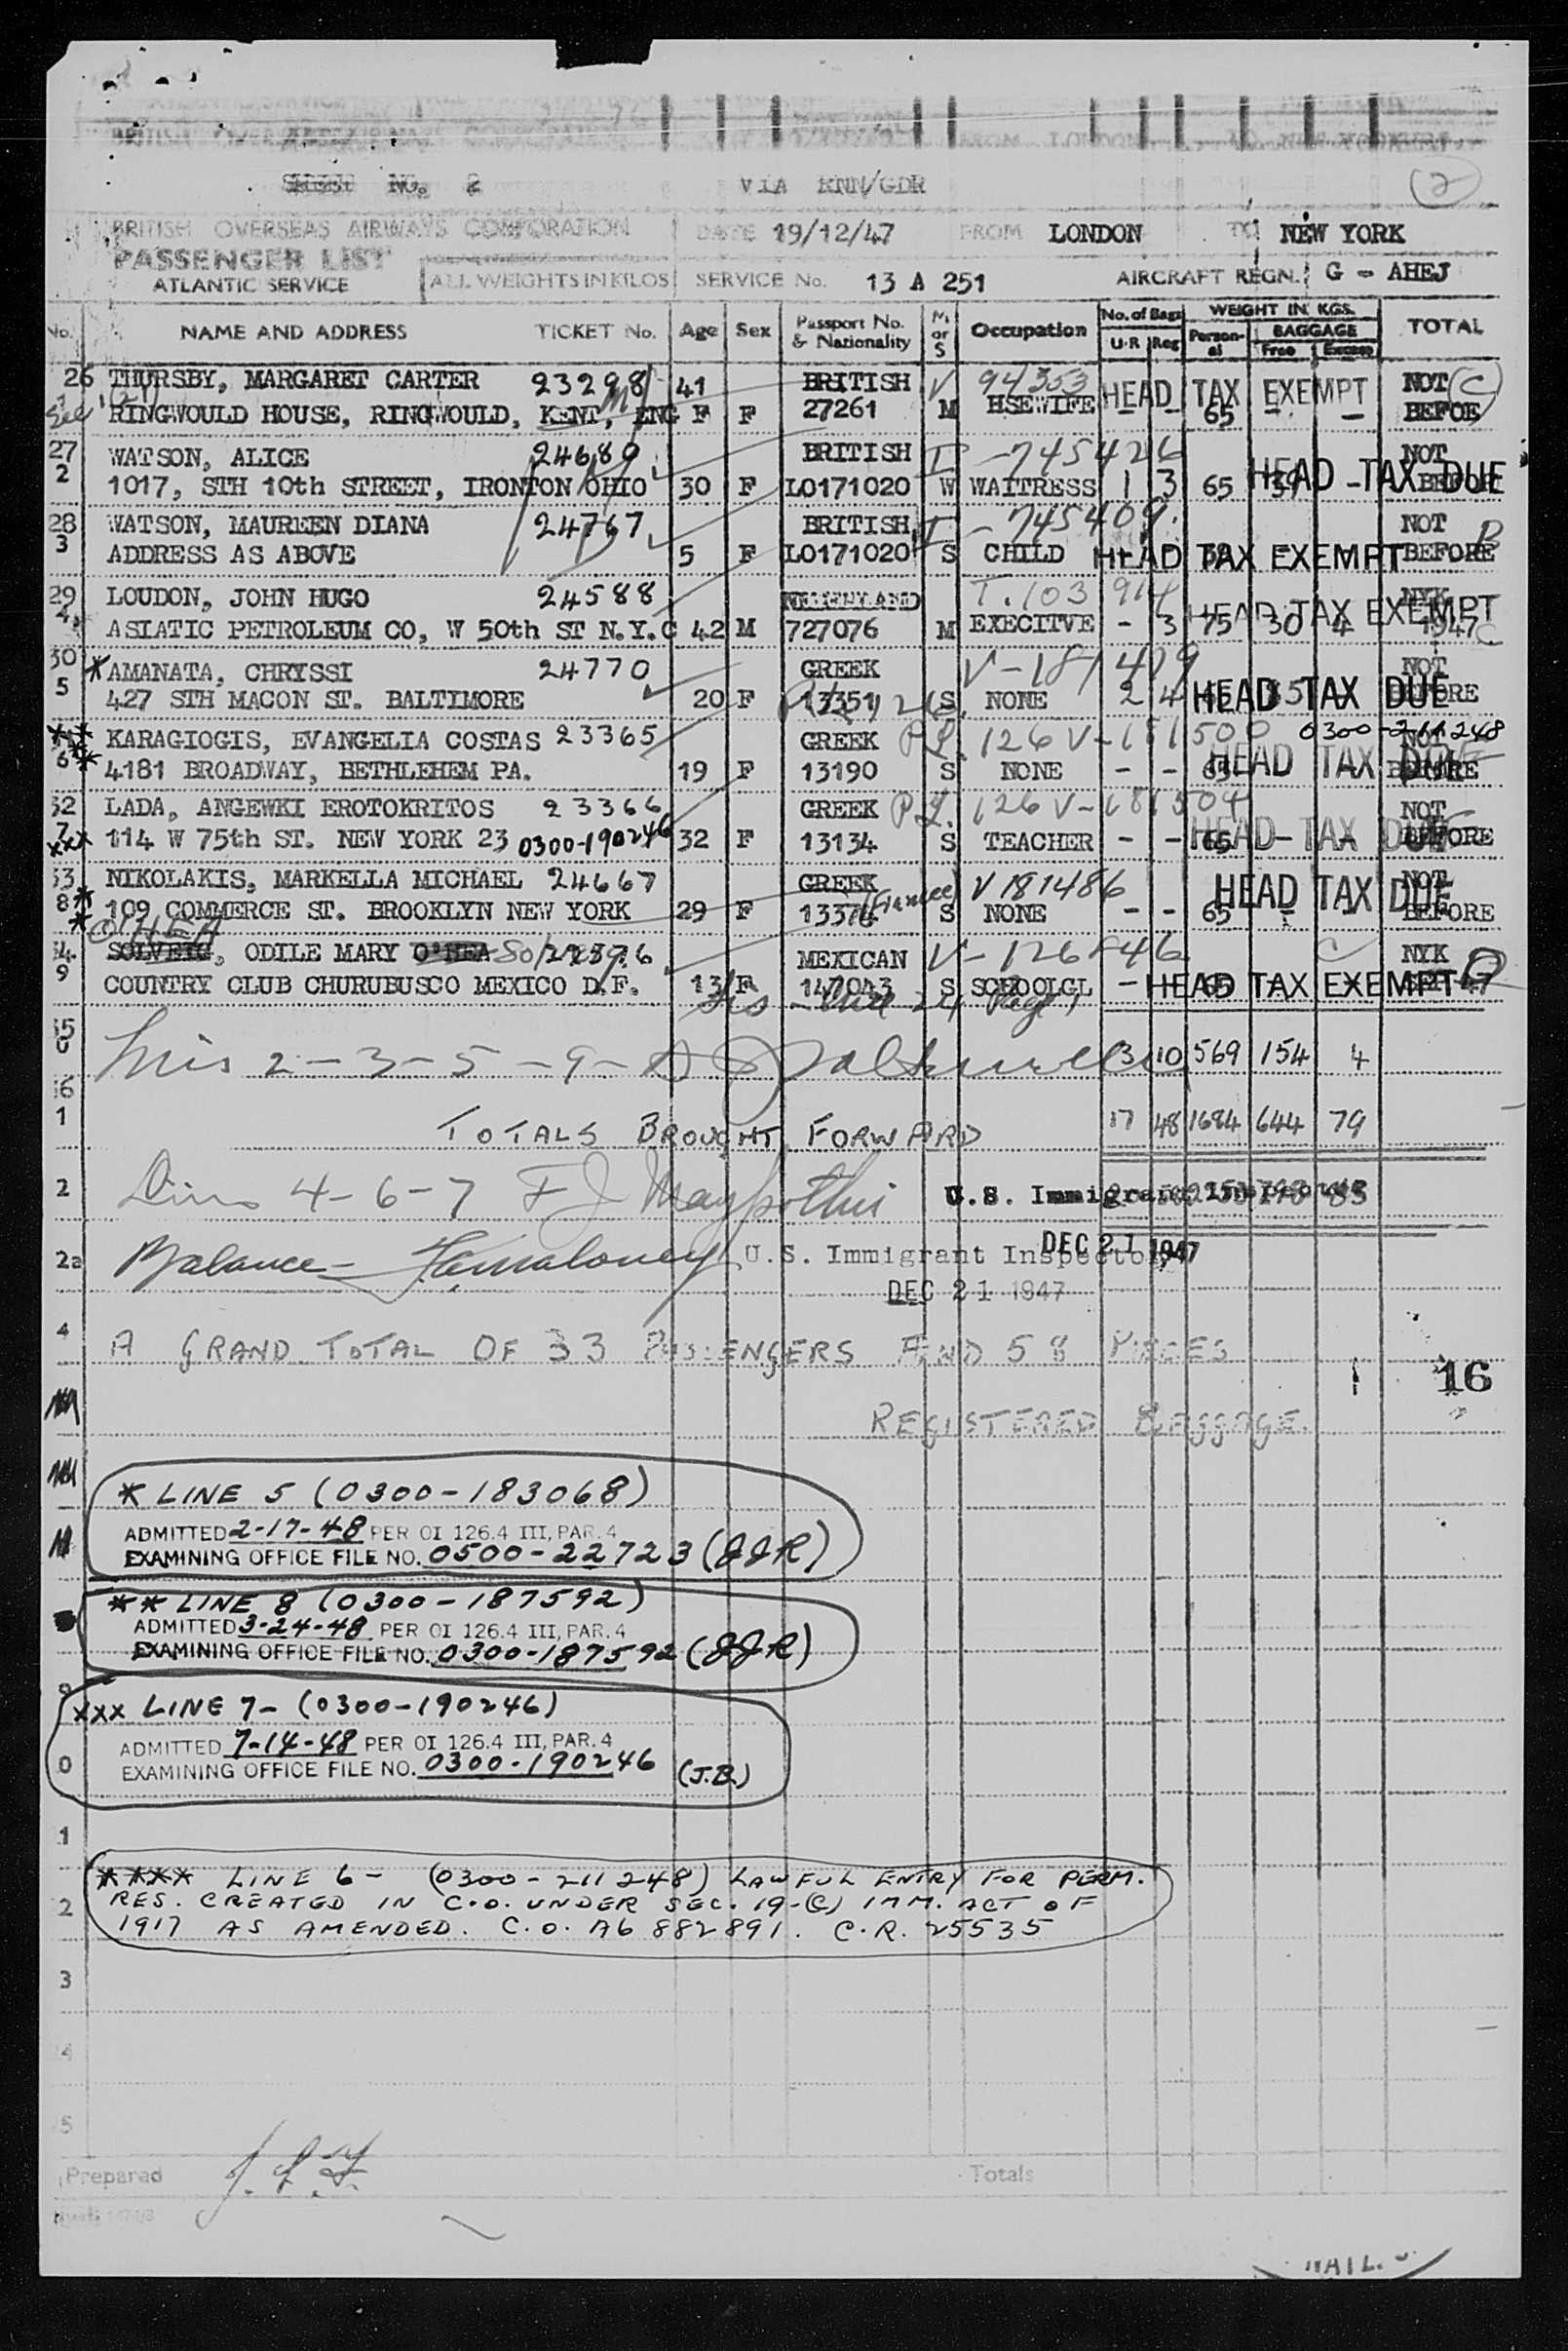 SHEET No. 2 VIA RNN/GDR (2)
BRITISH OVERSEAS AIRWAYS CORPORATION DATE 19/12/47 FROM LONDON TO NEW YORK
PASSENGER LIST
ATLANTIC SERVICE ALL WEIGHTS IN KILOS SERVICE No. 13 A 251 AIRCRAFT REGN. G - AHEJ
No. NAME AND ADDRESS TICKET No. Age Sex Passport No. & Nationality M or S Occupation No. of Bags U·R Reg WEIGHT IN KGS. Person-al BAGGAGE Free Excess TOTAL
26 THURSBY, MARGARET CARTER 23298 41 BRITISH V 94353 HEAD TAX EXEMPT NOT (C)
RINGWOULD HOUSE, RINGWOULD, KENT, ENG F F 27261 M HSEWIFE - - 65 - - BEFOE
27 WATSON, ALICE 24689 BRITISH I -745426 NOT
2 1017, STH 10th STREET, IRONTON OHIO 30 F L0171020 W WAITRESS 1 3 65 HEAD TAX DUE BEFORE
28 WATSON, MAUREEN DIANA 24767 BRITISH I - 745409 NOT
3 ADDRESS AS ABOVE 5 F L0171020 S CHILD HEAD TAX EXEMPT BEFORE
29 LOUDON, JOHN HUGO 24588 T.103 914 NYK
4 ASIATIC PETROLEUM CO, W 50th ST N.Y.C 42 M 727076 M EXECITVE - 3 75 30 4 HEAD TAX EXEMPT 1947 C
30 *AMANATA, CHRYSSI 24770 GREEK V-181419 NOT
5 427 STH MACON ST. BALTIMORE 20 F 13351 S NONE 2 4 HEAD TAX DUE BEFORE
KARAGIOGIS, EVANGELIA COSTAS 23365 GREEK P.L. 126 V-181500 0300-211248 NOT
6 4181 BROADWAY, BETHLEHEM PA. 19 F 13190 S NONE - - 65 HEAD TAX DUE BEFORE
32 LADA, ANGEWKI EROTOKRITOS 23366 GREEK P.L. 126 V-181504 NOT
7 xxx 114 W 75th ST. NEW YORK 23 0300-190246 32 F 13134 S TEACHER - - 65 HEAD TAX DUE BEFORE
33 NIKOLAKIS, MARKELLA MICHAEL 24667 GREEK (Fiancee) V 181486 NOT
8 ** 109 COMMERCE ST. BROOKLYN NEW YORK 29 F 13374 S NONE - - 65 HEAD TAX DUE BEFORE
O'HEA
34 SOLVEIG, ODILE MARY O'HEA MEXICAN V-126846 C NYK
9 COUNTRY CLUB CHURUBUSCO MEXICO D.F. 13 F S SCHOOLGL - HEAD TAX EXEMPT
35
0 Lines 2-3-5-9- 3 10 569 154 4
36
1 TOTALS BROUGHT FORWARD 17 48 1684 644 79
2 Lines 4-6-7 U.S. Immigrant Inspector
DEC 21 1947
2a Balance - F. Maloney U.S. Immigrant Inspector
DEC 21 1947
4 A GRAND TOTAL OF 33 PASSENGERS AND 58 PIECES
16
REGISTERED BAGGAGE.
* LINE 5 (0300-183068)
ADMITTED 2-17-48 PER OI 126.4 III, PAR. 4
EXAMINING OFFICE FILE NO. 0500-22723 (JJR)
** LINE 8 (0300-187592)
ADMITTED 3-24-48 PER OI 126.4 III, PAR. 4
EXAMINING OFFICE FILE NO. 0300-187592 (JJR)
9
xxx LINE 7- (0300-190246)
ADMITTED 7-14-48 PER OI 126.4 III, PAR. 4
0 EXAMINING OFFICE FILE NO. 0300-190246 (J.B.)
1
**** LINE 6- (0300-211248) LAWFUL ENTRY FOR PERM.
2 RES. CREATED IN C.O. UNDER SEC. 19-(C) IMM. ACT OF
1917 AS AMENDED. C.O. A6 882891. C.R. 25535
3
4
5
Prepared J.L.F. Totals